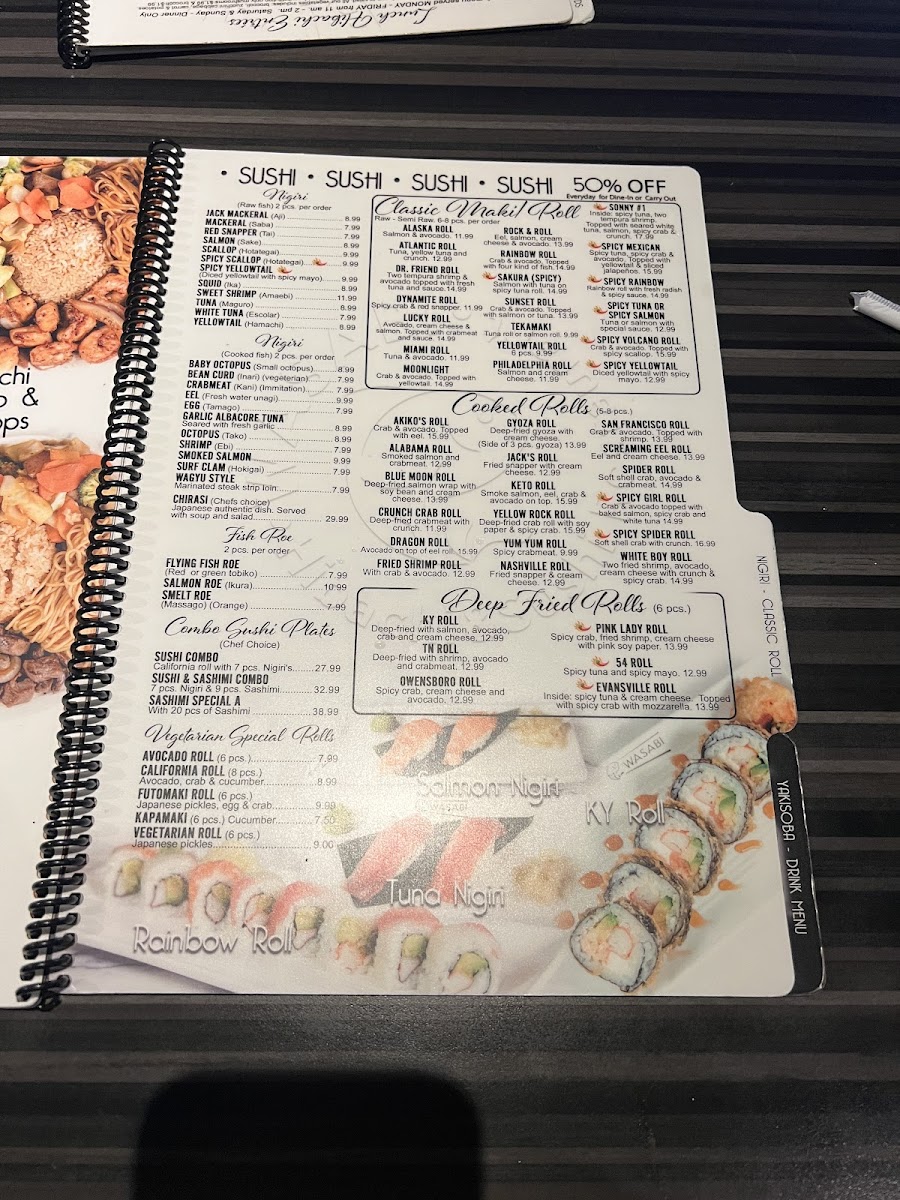 Lunch Hibachi Entrées
• SUSHI • SUSHI • SUSHI • SUSHI 50% OFF
Everyday for Dine-In or Carry Out
Nigiri
(Raw fish) 2 pcs. per order
JACK MACKERAL (Aji) 8.99
MACKERAL (Saba) 7.99
RED SNAPPER (Tai) 7.99
SALMON (Sake) 8.99
SCALLOP (Hotategai) 8.99
SPICY SCALLOP (Hotategai) 9.99
SPICY YELLOWTAIL
(Diced yellowtail with spicy mayo) 9.99
SQUID (Ika) 8.99
SWEET SHRIMP (Amaebi) 11.99
TUNA (Maguro) 8.99
WHITE TUNA (Escolar) 7.99
YELLOWTAIL (Hamachi) 8.99
Nigiri
(Cooked fish) 2 pcs. per order
BABY OCTOPUS (Small octopus) 8.99
BEAN CURD (Inari) (vegetarian) 7.99
CRABMEAT (Kani) (Immitation) 7.99
EEL (Fresh water unagi) 9.99
EGG (Tamago) 7.99
GARLIC ALBACORE TUNA
Seared with fresh garlic 8.99
OCTOPUS (Tako) 8.99
SHRIMP (Ebi) 7.99
SMOKED SALMON 9.99
SURF CLAM (Hokigai) 7.99
WAGYU STYLE
Marinated steak strip loin 7.99
CHIRASI (Chefs choice)
Japanese authentic dish. Served
with soup and salad 29.99
Fish Roe
2 pcs. per order
FLYING FISH ROE
(Red or green tobiko) 7.99
SALMON ROE (Ikura) 10.99
SMELT ROE
(Massago) (Orange) 7.99
Combo Sushi Plates
(Chef Choice)
SUSHI COMBO
California roll with 7 pcs. Nigiri's 27.99
SUSHI & SASHIMI COMBO
7 pcs. Nigiri & 9 pcs. Sashimi 32.99
SASHIMI SPECIAL A
With 20 pcs of Sashimi 38.99
Vegetarian Special Rolls
AVOCADO ROLL (6 pcs.) 7.99
CALIFORNIA ROLL (8 pcs.)
Avocado, crab & cucumber 8.99
FUTOMAKI ROLL (6 pcs)
Japanese pickles, egg & crab 9.99
KAPAMAKI (6 pcs.) Cucumber 7.50
VEGETARIAN ROLL (6 pcs)
Japanese pickles 9.00
Classic Maki/Roll
Raw - Semi Raw. 6-8 pcs. per order
ALASKA ROLL
Salmon & avocado. 11.99
ATLANTIC ROLL
Tuna, yellow tuna and
crunch. 12.99
DR. FRIEND ROLL
Two tempura shrimp &
avocado topped with fresh
tuna and sauce. 14.99
DYNAMITE ROLL
Spicy crab & red snapper. 11.99
LUCKY ROLL
Avocado, crem cheese &
salmon. Topped with crabmeat
and sauce. 14.99
MIAMI ROLL
Tuna & avocado. 11.99
MOONLIGHT
Crab & avocado. Topped with
yellowtail. 14.99
ROCK & ROLL
Eel, salmon, cream
cheese & avocado. 13.99
RAINBOW ROLL
Crab & avocado. Topped
with four kind of fish. 14.99
SAKURA (SPICY)
Salmon with tuna on
spicy tuna roll. 14.99
SUNSET ROLL
Crab & avocado. Topped
with salmon or tuna. 13.99
TEKAMAKI
Tuna roll or salmon roll. 9.99
YELLOWTAIL ROLL
6 pcs. 9.99
PHILADELPHIA ROLL
Salmon and cream
cheese. 11.99
SONNY #1
Inside: spicy tuna, two
tempura shrimp.
Topped with seared white
tuna, salmon, spicy crab &
crunch. 17.99
SPICY MEXICAN
Spicy tuna, spicy crab
& avocado. Topped
with yellowtail & sliced
jalapeños. 15.99
SPICY RAINBOW
Rainbow roll with fresh radish
& spicy sauce. 14.99
SPICY TUNA OR
SPICY SALMON
Tuna or salmon with
special sauce. 12.99
SPICY VOLCANO ROLL
Crab & avocado. Topped with
spicy scallop. 15.99
SPICY YELLOWTAIL
Diced yellowtail with spicy
mayo. 12.99
Cooked Rolls (5-8 pcs.)
AKIKO'S ROLL
Crab & avocado. Topped
with eel. 15.99
ALABAMA ROLL
Smoked salmon and
crabmeat. 12.99
BLUE MOON ROLL
Deep-fried salmon wrap with
soy bean and cream
cheese. 13.99
CRUNCH CRAB ROLL
Deep-fried crabmeat with
crunch. 11.99
DRAGON ROLL
Avocado on top of eel roll. 15.99
FRIED SHRIMP ROLL
With crab & avocado. 12.99
GYOZA ROLL
Deep-fried gyoza with
cream cheese.
(Side of 3 pcs. gyoza) 13.99
JACK'S ROLL
Fried snapper with cream
cheese. 12.99
KETO ROLL
Smoke salmon, eel, crab &
avocado on top. 15.99
YELLOW ROCK ROLL
Deep-fried crab roll with soy
paper & spicy crab. 15.99
YUM YUM ROLL
Spicy crabmeat. 9.99
NASHVILLE ROLL
Fried snapper & cream
cheese. 12.99
SAN FRANCISCO ROLL
Crab & avocado. Topped with
shrimp. 13.99
SCREAMING EEL ROLL
Eel and cream cheese. 13.99
SPIDER ROLL
Soft shell crab, avocado &
crabmeat. 14.99
SPICY GIRL ROLL
Crab & avocado topped with
baked salmon, spicy crab and
white tuna 14.99
SPICY SPIDER ROLL
Soft shell crab with crunch. 16.99
WHITE BOY ROLL
Two fried shrimp, avocado,
cream cheese with crunch &
spicy crab. 14.99
Deep Fried Rolls (6 pcs.)
KY ROLL
Deep-fried with salmon, avocado,
crab and cream cheese. 12.99
TN ROLL
Deep-fried with shrimp, avocado
and crabmeat. 12.99
OWENSBORO ROLL
Spicy crab, cream cheese and
avocado. 12.99
PINK LADY ROLL
Spicy crab, fried shrimp, cream cheese
with pink soy paper. 13.99
54 ROLL
Spicy tuna and spicy mayo. 12.99
EVANSVILLE ROLL
Inside: spicy tuna & cream cheese. Topped
with spicy crab with mozzarella. 13.99
Salmon Nigiri
WASABI
KY Roll
Tuna Nigiri
Rainbow Roll
NIGIRI - CLASSIC ROLL
YAKISOBA - DRINK MENU